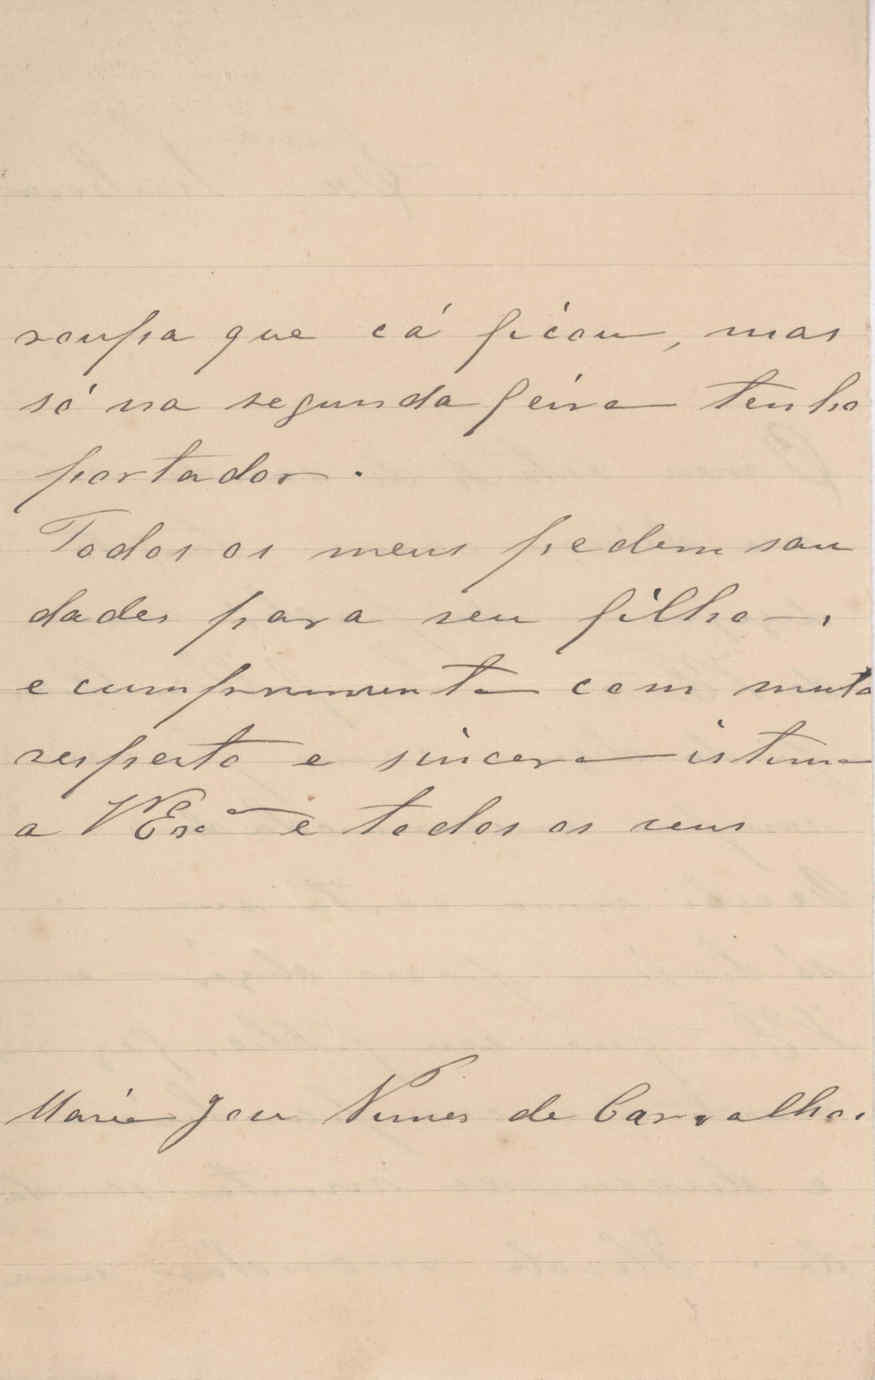 roupa que cá ficou, mas
só na segunda feira tenho
portador.
Todos os meus pedem sau
dades para seu filho,
e cumprimenta com muito
respeito e sincera istima
a VExª e todos os seus
Maria José Nunes de Carvalho.